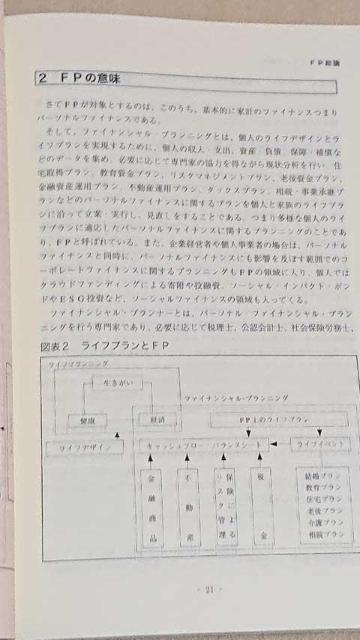 FP総論
2 FPの意味
さてFPが対象とするのは、このうち、基本的に家計のファイナンスつまり
パーソナルファイナンスである。
そして、ファイナンシャル・プランニングとは、個人のライフデザインとラ
イフプランを実現するために、個人の収入・支出、資産・負債、保障・補償な
どのデータを集め、必要に応じて専門家の協力を得ながら現状分析を行い、住
宅取得プラン、教育資金プラン、リスクマネジメントプラン、老後資金プラン、
金融資産運用プラン、不動産運用プラン、タックスプラン、相続・事業承継プ
ランなどのパーソナルファイナンスに関するプランを個人と家族のライフプラ
ンに沿って立案・実行し、見直しをすることである。つまり多様な個人のライ
フプランに適応したパーソナルファイナンスに関するプランニングのことであ
り、FPと呼ばれている。また、企業経営者や個人事業者の場合は、パーソナル
ファイナンスと同時に、パーソナルファイナンスにも影響を及ぼす範囲でのコ
ーポレートファイナンスに関するプランニングもFPの領域に入り、個人では
クラウドファンディングによる寄附や投融資、ソーシャル・インパクト・ボン
ドやESG投資など、ソーシャルファイナンスの領域も入ってくる。
ファイナンシャル・プランナーとは、パーソナル・ファイナンシャル・プラン
ニングを行う専門家であり、必要に応じて税理士、公認会計士、社会保険労務士、
図表2 ライフプランとFP
ライフプランニング
生きがい
ファイナンシャル・プランニング
健康
経済
FP上のライフプラン
ライフデザイン
キャッシュフロー・バランスシート
ライフイベント
金融商品
不動産
保険による
リスク管理
税金
結婚プラン
教育プラン
住宅プラン
老後プラン
介護プラン
相続プラン
- 21 -